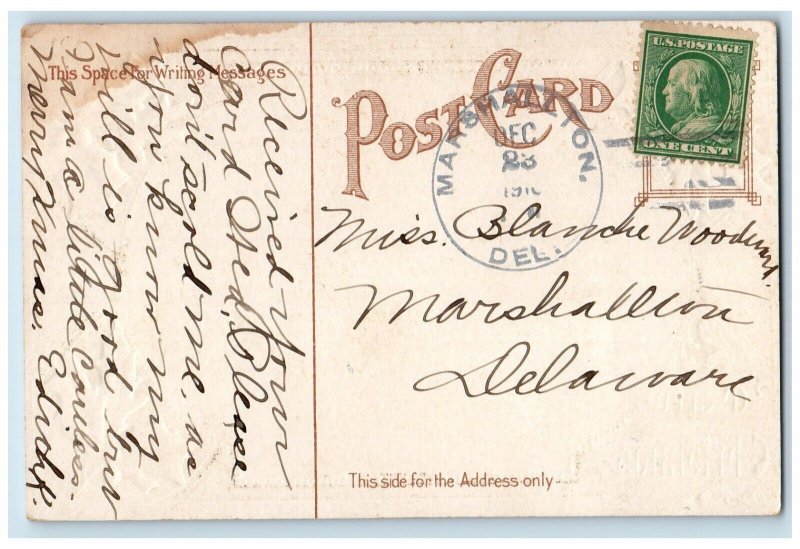 This Space for Writing Messages
Received your
Card Sted. Please
don't scold me, as
you know my
will is good but
I am a little careless.
Merry Xmas. Edith.
POST CARD
MARSHALLTON.
DEC
23
191
DEL.
U.S. POSTAGE
ONE CENT
Miss. Blanche Woodward.
Marshallton
Delaware
This side for the Address only